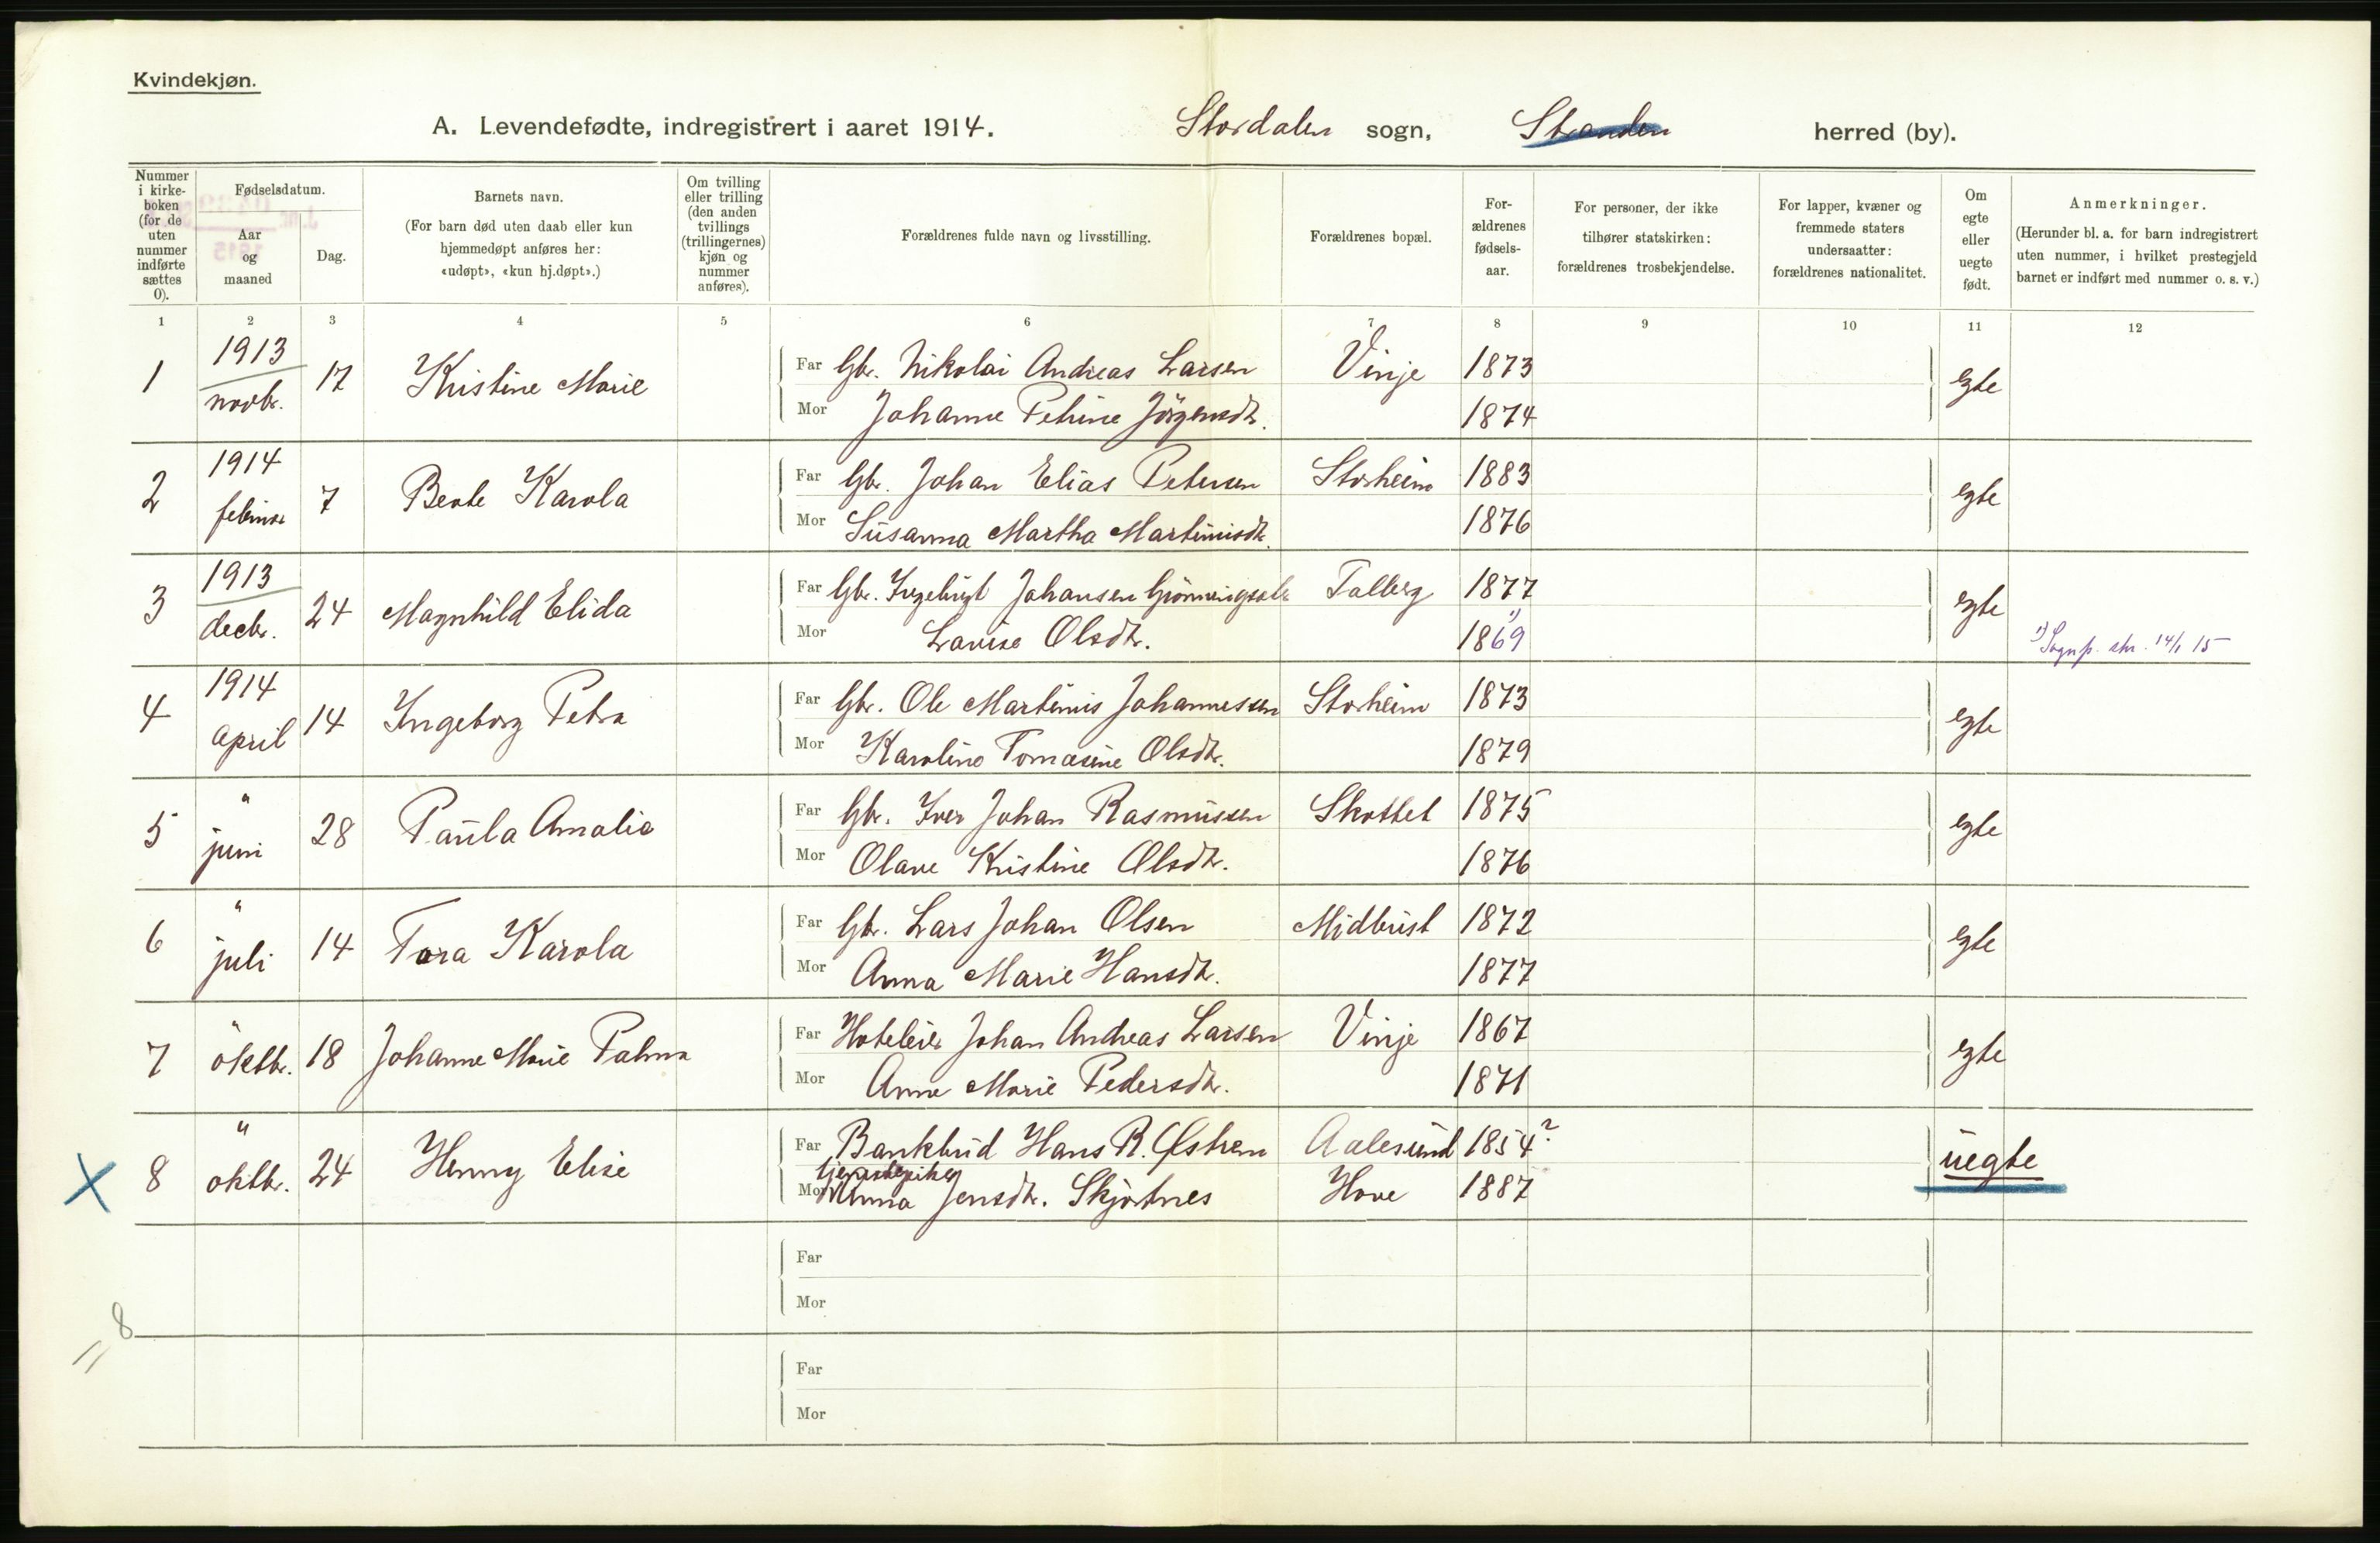 Kvindekjøn.
A. Levendefødte, indregistrert i aaret 1914. Stordalen sogn, Stranden herred (by).
Nummer i kirkeboken (for de uten nummer indførte sættes 0).
Fødselsdatum.
Aar og maaned
Dag.
Barnets navn.
(For barn død uten daab eller kun hjemmedøpt anføres her: «udøpt», «kun hj.døpt».)
Om tvilling eller trilling (den anden tvillings (trillingernes) kjøn og nummer anføres).
Forældrenes fulde navn og livsstilling.
Forældrenes bopæl.
Forældrenes fødselsaar.
For personer, der ikke tilhører statskirken: forældrenes trosbekjendelse.
For lapper, kvæner og fremmede staters undersaatter: forældrenes nationalitet.
Om egte eller uegte født.
Anmerkninger.
(Herunder bl. a. for barn indregistrert uten nummer, i hvilket prestegjeld barnet er indført med nummer o. s. v.)
1 2 3 4 5 6 7 8 9 10 11 12
1 1913 novbr. 17 Kristine Marie Far Gbr. Nikolai Andreas Larsen Vinje 1873 egte
Mor Johanne Petrine Jörgensdtr. 1874
2 1914 februar 7 Beate Karola Far Gbr. Johan Elias Petersen Storheim 1883 egte
Mor Susanna Martha Martinusdtr. 1876
3 1913 decbr. 24 Magnhild Elida Far Gbr. Ingebrigt Johansen Grönningsæter Talberg 1877 egte
Mor Lovise Olsdtr. 1869 1) 1) Sognp. skr. 14/1 15
4 1914 april 14 Ingeborg Petra Far Gbr. Ole Martinus Johannessen Storheim 1873 egte
Mor Karoline Tomasine Olsdtr. 1879
5 " juni 28 Paula Amalie Far Gbr. Iver Johan Rasmussen Skottet 1875 egte
Mor Olave Kristine Olsdtr. 1876
6 " juli 14 Tora Karola Far Gbr. Lars Johan Olsen Midtbust 1872 egte
Mor Anna Marie Hansdtr. 1877
7 " oktbr. 18 Johanne Marie Palma Far Hoteleier Johan Andreas Larsen Vinje 1867 egte
Mor Anne Marie Pedersdtr. 1871
X 8 " oktbr. 24 Henny Elise Far Bankbud Hans R. Østrem Aalesund 1854? uegte
Mor Anna Jensdtr. Skjortnes Hove 1887
Far
Mor
= 8
Far
Mor